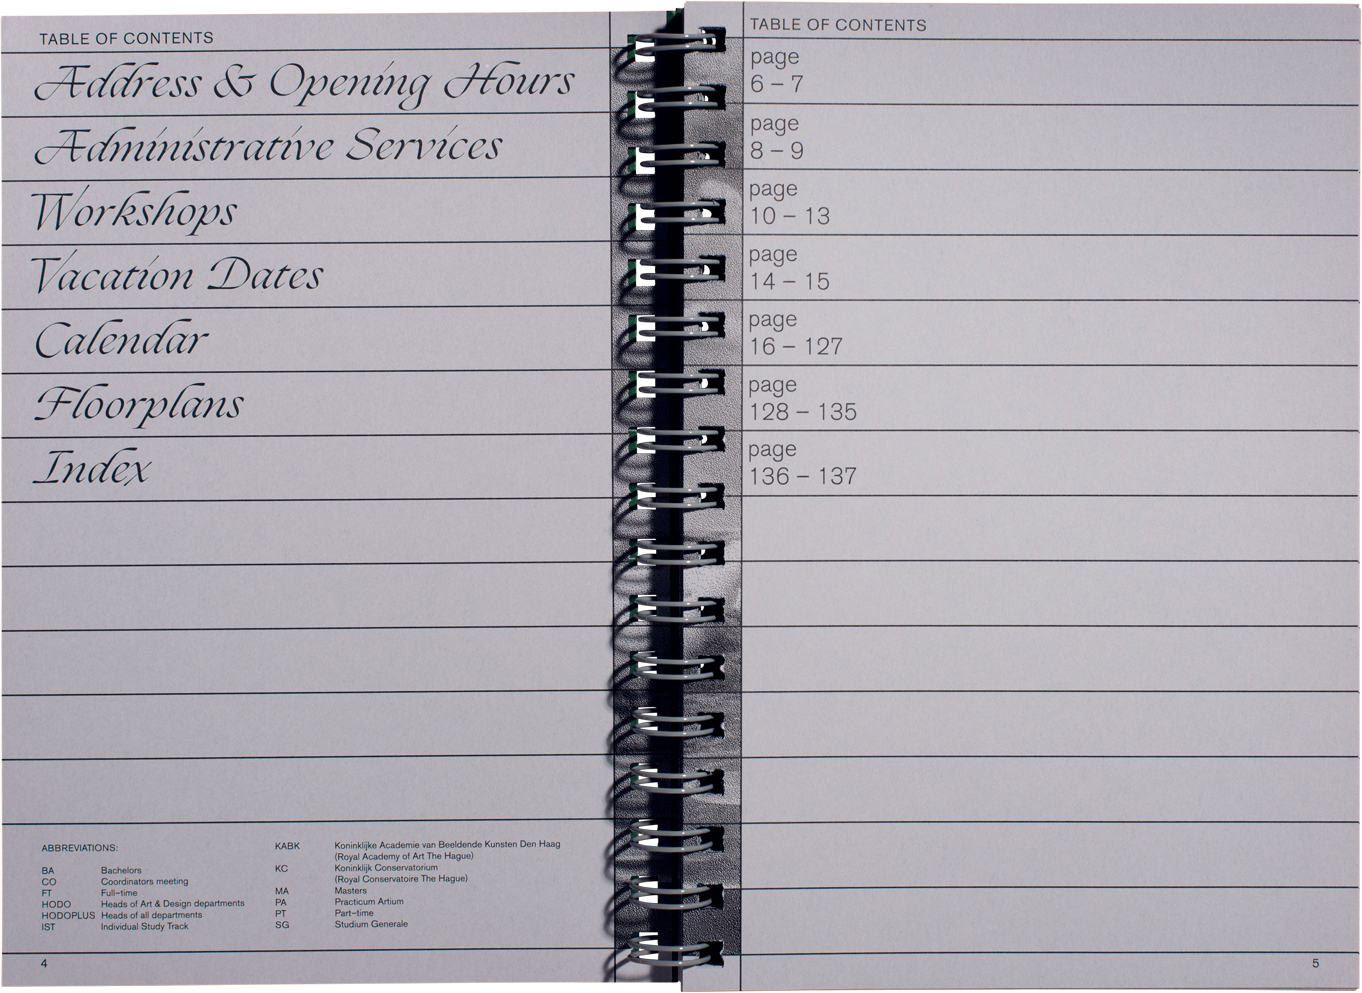 TABLE OF CONTENTS
Address & Opening Hours
Administrative Services
Workshops
Vacation Dates
Calendar
Floorplans
Index
ABBREVIATIONS:
BA Bachelors
CO Coordinators meeting
FT Full–time
HODO Heads of Art & Design departments
HODOPLUS Heads of all departments
IST Individual Study Track
KABK Koninklijke Academie van Beeldende Kunsten Den Haag
(Royal Academy of Art The Hague)
KC Koninklijk Conservatorium
(Royal Conservatoire The Hague)
MA Masters
PA Practicum Artium
PT Part–time
SG Studium Generale
4
TABLE OF CONTENTS
page
6 – 7
page
8 – 9
page
10 – 13
page
14 – 15
page
16 – 127
page
128 – 135
page
136 – 137
5